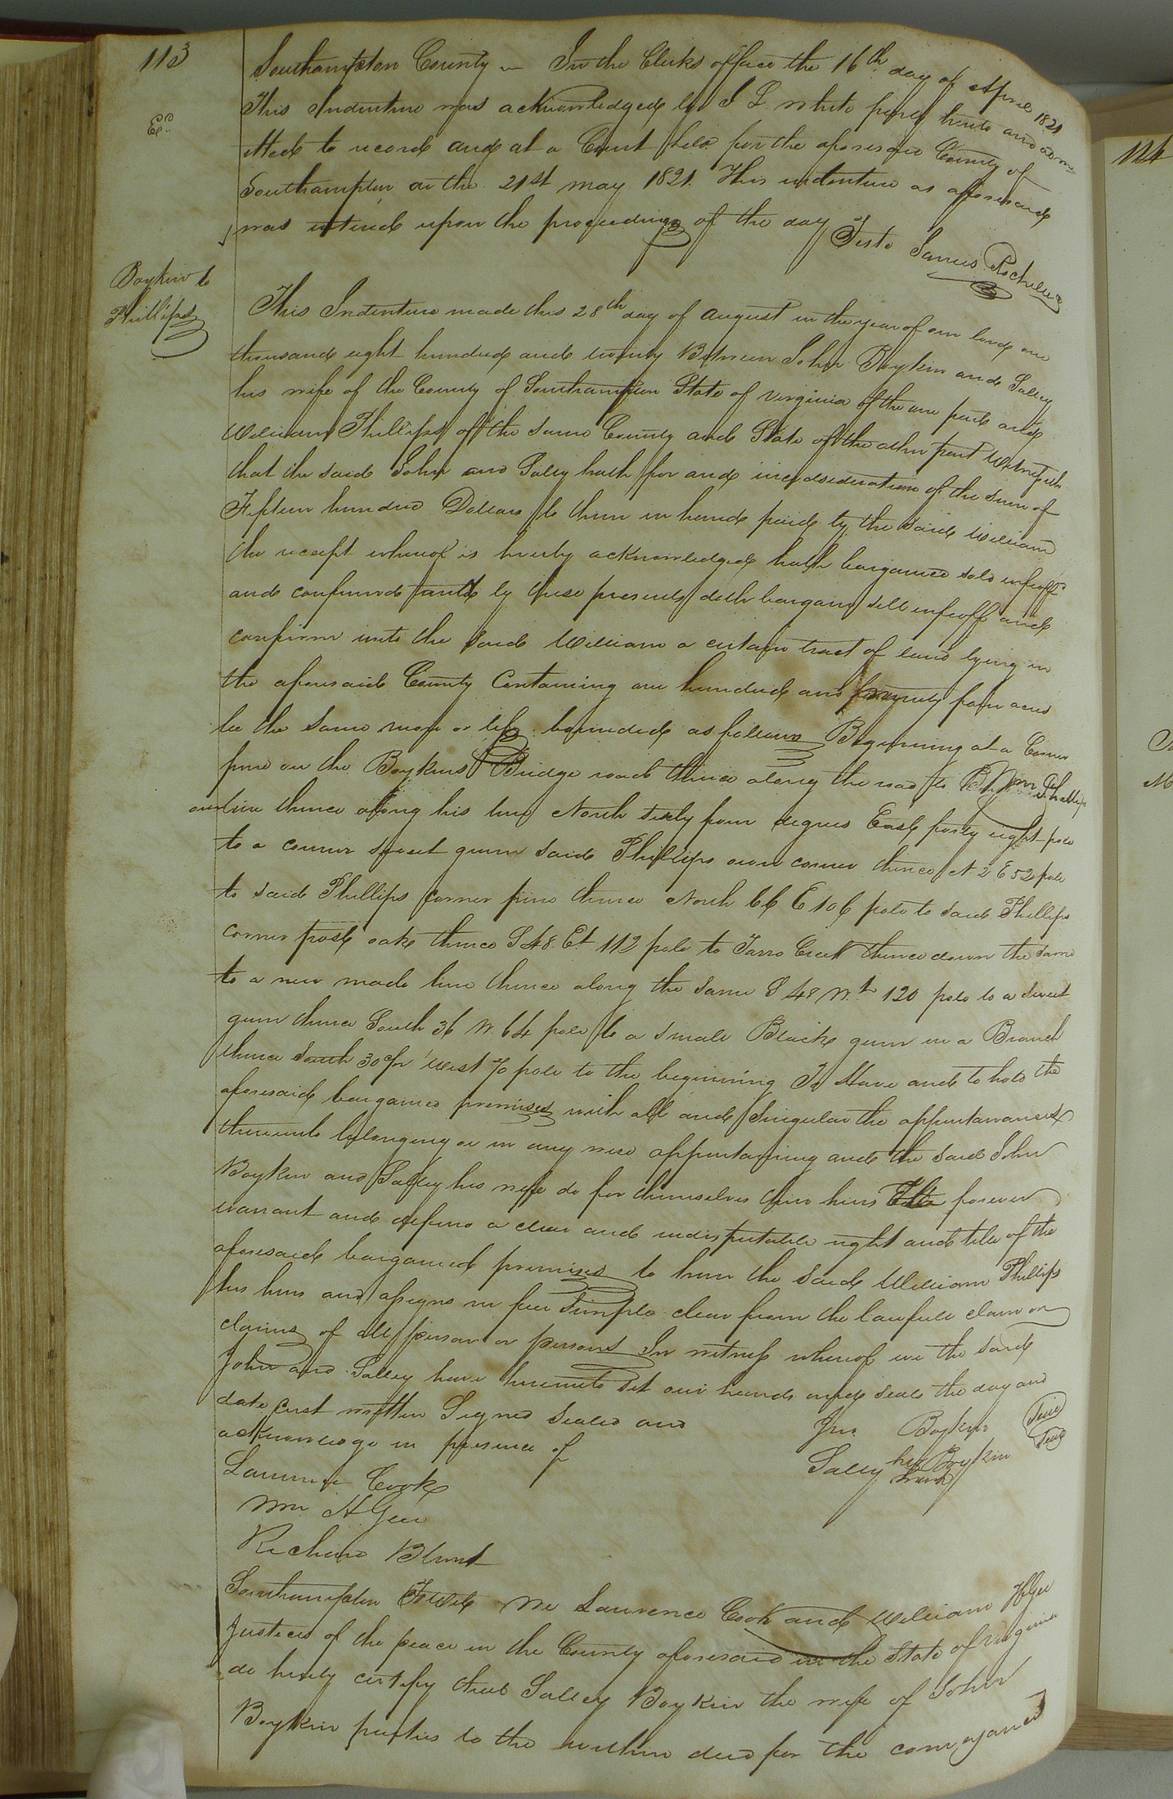 113
Southampton County — In the Clerks office the 16th day of April 1821
This Indenture was acknowledged by J L white party hereto and admi
tted to record and at a Court held for the aforesaid County of
Southampton on the 21st may 1821. This indenture as aforesaid
was entered upon the proceedings of the day Teste James Rochelle
Ex
Boykin to
Phillips
This Indenture made this 28th day of August in the year of our lord one
thousand eight hundred and twenty Between John Boykin and Salley
his wife of the County of Southampton State of virginia of the one part and
William Phillips of the same County and State of the other part Witnesseth
that the said John and Salley hath for and in consideration of the sum of
Fifteen hundred Dollars to them in hand paid by the said William
the receipt whereof is hereby acknowledged hath bargained sold infeoff
and confirmed and by these presents doth bargain sell infeoff and
confirm unto the said William a certain tract of land lying in
the aforesaid County Containing one hundred and four acres
be the same more or less bounded as follows Beginning at a Corner
pine on the Boykins Bridge road thence along the road to Wm Phillips
line thence along his line North sixty four degrees East forty eight pole
to a corner sweet gum said Phillips own corner thence N 2 E 52 pole
to said Phillips corner pine thence North 66 E 106 pole to said Phillips
corner post oak thence S 48 Et 112 pole to Tarro Creek thence down the same
to a new made line thence along the same S 48 Wt 120 pole to a sweet
gum thence South 36 W 64 pole to a small Black gum in a Branch
thence South 30 West 70 pole to the beginning To Have and to hold the
aforesaid bargained premises with all and singular the appurtanances
thereunto belonging or in any wise appurtaining and the said John
Boykin and Salley his wife do for themselves their heirs forever
warrant and defend a clear and indisputable right and title of the
aforesaid bargained premises to him the said William Phillips
his heirs and assigns in fee simple clear from the lawfull claim or
claims of all person or persons In witness whereof we the said
John and Salley have hereunto set our hands and seals the day and
date first written Signed Sealed and Jno Boykin Seal
acknowledge in presence of Salley her mark Boykin Seal
Lawrence Cook
Wm H Gee
Richard Blunt
Southampton To Wit We Lawrence Cook and William H Gee
Justices of the peace in the County aforesaid in the State of Virginia
do hereby certify that Salley Boykin the wife of John
Boykin parties to the within deed for the conveyance
114